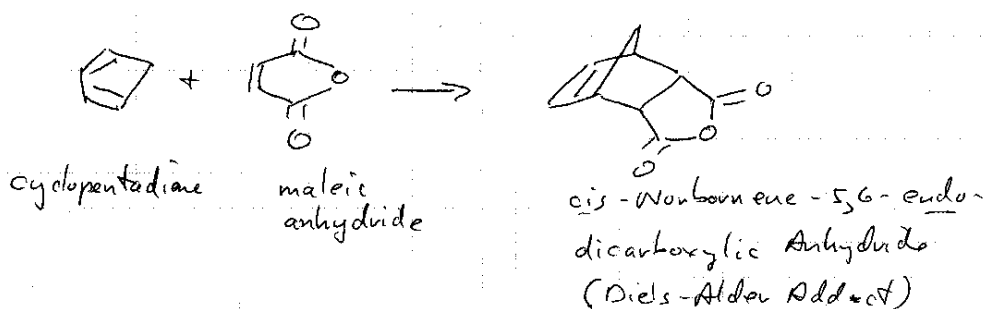 O
+
O
O
→
O
O
O
cyclopentadiene
maleic
anhydride
cis-Norbornene-5,6-endo-
dicarboxylic Anhydride
(Diels-Alder Adduct)